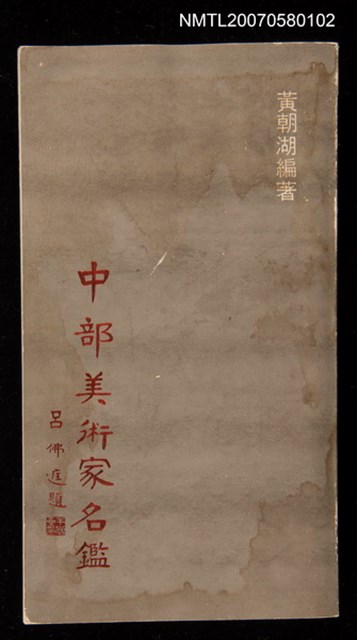 NMTL20070580102
黃朝湖編著
中部美術家名鑑
呂佛庭題